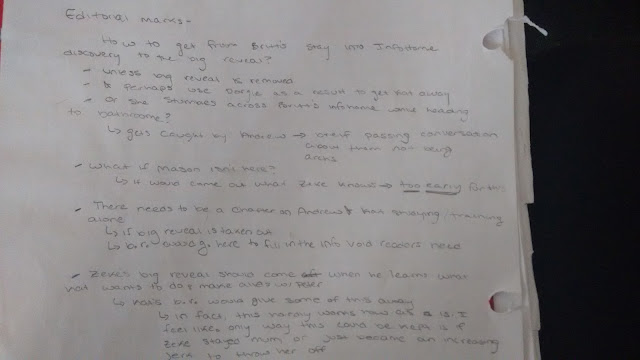 Editorial Marks-
How to get from Brutis stay into Infodome
discovery to the big reveal?
- unless big reveal is removed
- & perhaps use as a result to get Kat away
- Or she stumbles across Brutis infodome while heading
to bathroom?
↳ gets caught by Andrew → brief passing conversation
about them not being
- What if Mason isn't here?
↳ it would come out what Zeke knows → too early for this
- There needs to be a chapter on Andrew & Kat studying/training
alone
↳ if big reveal is taken out
↳ b.r. could go here to fill in the info void readers need
- Zeke's big reveal should come when he learns what
Kat wants to do
↳ Kat's b.r. would give some of this away
↳ in fact, this harmony works now as is. I
feel like, only way this could be kept is if
Zeke stayed mum or just became an increasing
jerk to throw her off